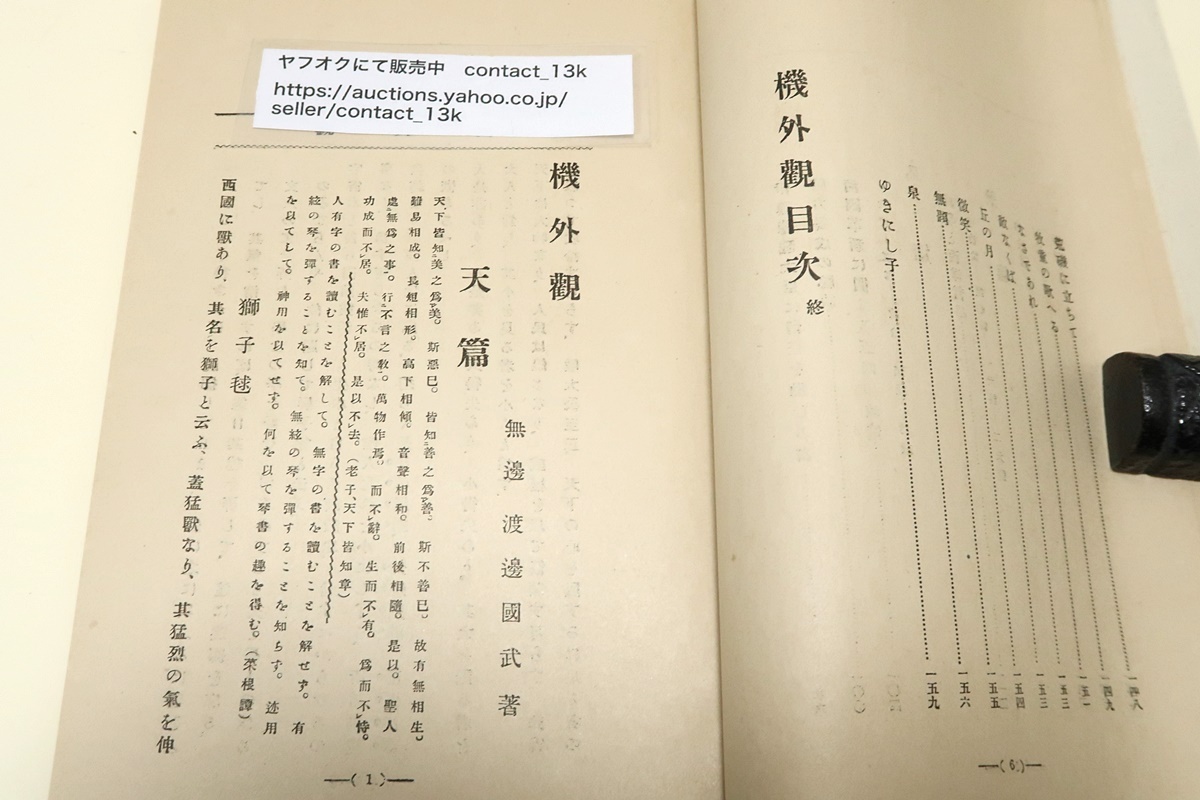 ヤフオクにて販売中 contact_13k
https://auctions.yahoo.co.jp/
seller/contact_13k
荒磯に立ちて 一四八
牧童の歌へる 一四九
なさであれ 一五一
敵なくば 一五三
一五三
の月 一五四
微笑 一五五
無題 一五六
泉 一五九
ゆきにし子
機外觀目次 終
(6)
機外觀
無邊 渡邊國武著
天篇
天下皆知美之爲美。斯惡已。皆知善之爲善。斯不善已。故有無相生。
難易相成。長短相形。高下相傾。音聲相和。前後相隨。是以。聖人
處無爲之事。行不言之敎。萬物作焉。而不辭。生而不有。爲而不恃。
功成而不居。夫惟不居。是以不去。(老子、天下皆知章)
人有字の書を讀むことを解して。無字の書を讀むことを解せず。有
絃の琴を彈することを知て。無絃の琴を彈することを知らず。迹用
を以てして。神用を以てせず。何を以て琴書の趣を得む。(菜根譚)
獅子毬
西國に獸あり、其名を獅子と云ふ、蓋猛獸なり、其猛烈の氣を伸
(1)